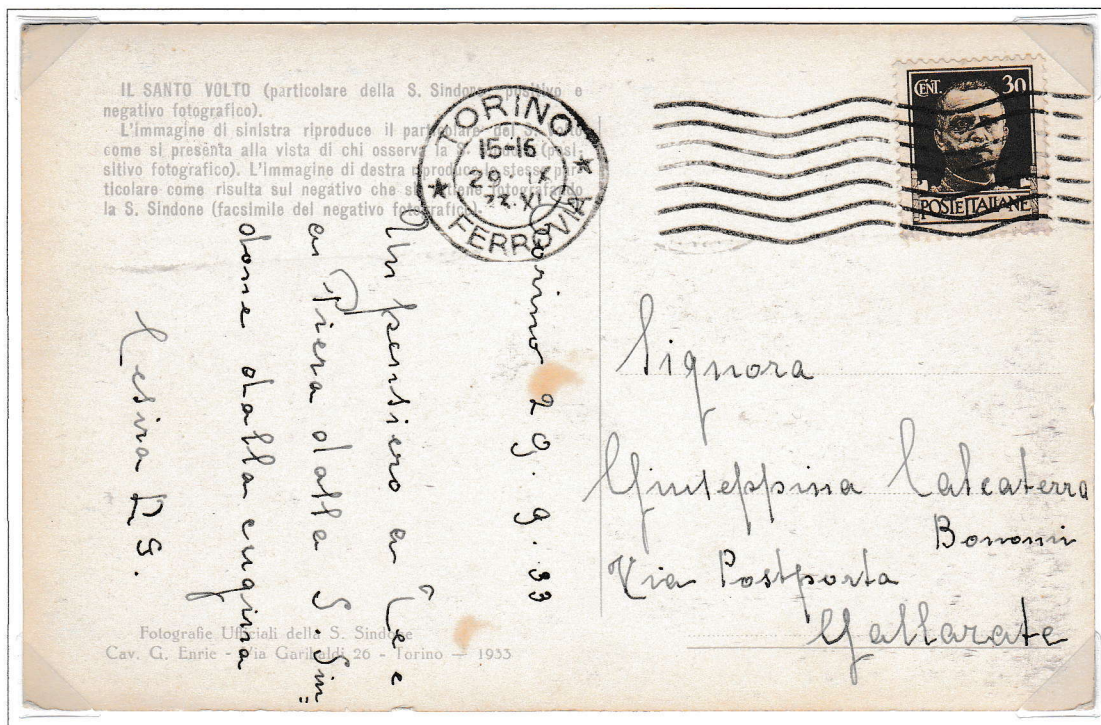 IL SANTO VOLTO (particolare della S. Sindone, positivo e
negativo fotografico).
L'immagine di sinistra riproduce il particolare del S. Volto
come si presenta alla vista di chi osserva la S. Sindone (posi-
sitivo fotografico). L'immagine di destra riproduce lo stesso par-
ticolare come risulta sul negativo che si ottiene fotografando
la S. Sindone (facsimile del negativo fotografico).
TORINO
15-16
29.IX
33.XI
FERROVIA
CENT. 30
POSTE ITALIANE
Torino 29.9.33
Un pensiero a Te e
a Piera dalla S. Sin=
done dalla cugina
Cesira
Signora
Giuseppina Calcaterra
Bonomi
Via Postporta
Gallarate
Fotografie Ufficiali della S. Sindone
Cav. G. Enrie - Via Garibaldi 26 - Torino — 1933